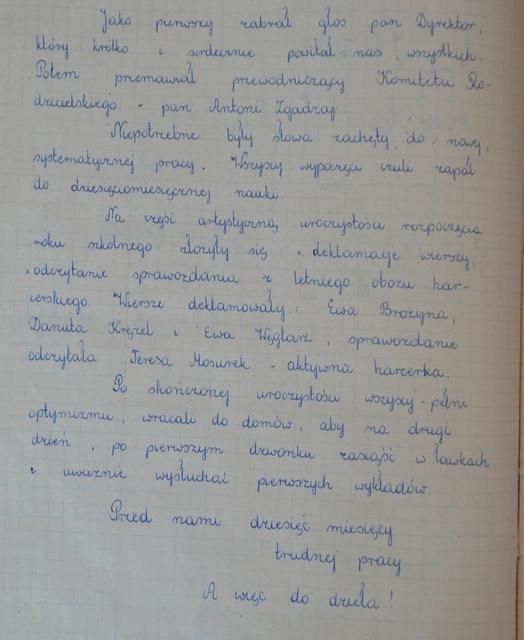 Jako pierwszy zabrał głos pan Dyrektor,
który krótko i serdecznie powitał nas wszystkich.
Potem przemawiał przewodniczący Komitetu Ro-
dzicielskiego - pan Antoni Zgadzaj
Niepotrzebne były słowa zachęty do nowej,
systematycznej pracy. Wszyscy wypoczęci czuli zapał
do dziesięciomiesięcznej nauki.
Na część artystyczną uroczystości rozpoczęcia
roku szkolnego złożyły się, deklamacje wierszy,
odczytanie sprawozdania z letniego obozu har-
cerskiego. Wiersze deklamowały: Ewa Brożyna,
Danuta Krężel i Ewa Węglarz, sprawozdanie
odczytała Teresa Mosurek - aktywna harcerka.
Po skończonej uroczystości wszyscy - pełni
optymizmu, wracali do domów, aby na drugi
dzień, po pierwszym dzwonku zasiąść w ławkach
i uważnie wysłuchać pierwszych wykładów.
Przed nami dziesięć miesięcy
trudnej pracy
A więc do dzieła!